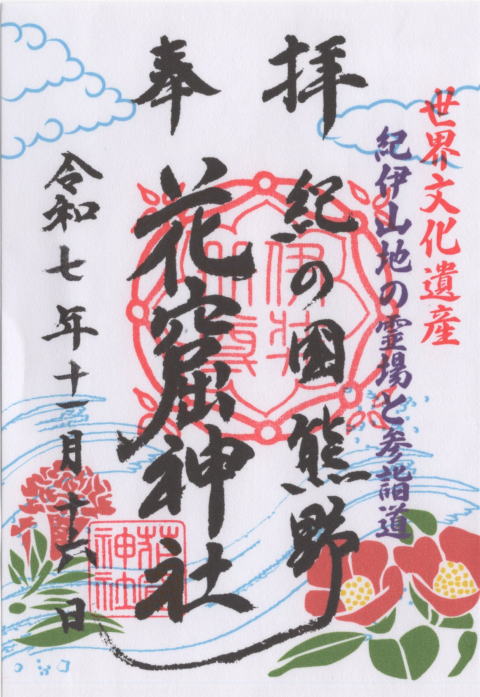 世界文化遺産
紀伊山地の霊場と参詣道
奉拝
紀の国熊野
花窟神社
令和七年十一月十六日
花窟神社